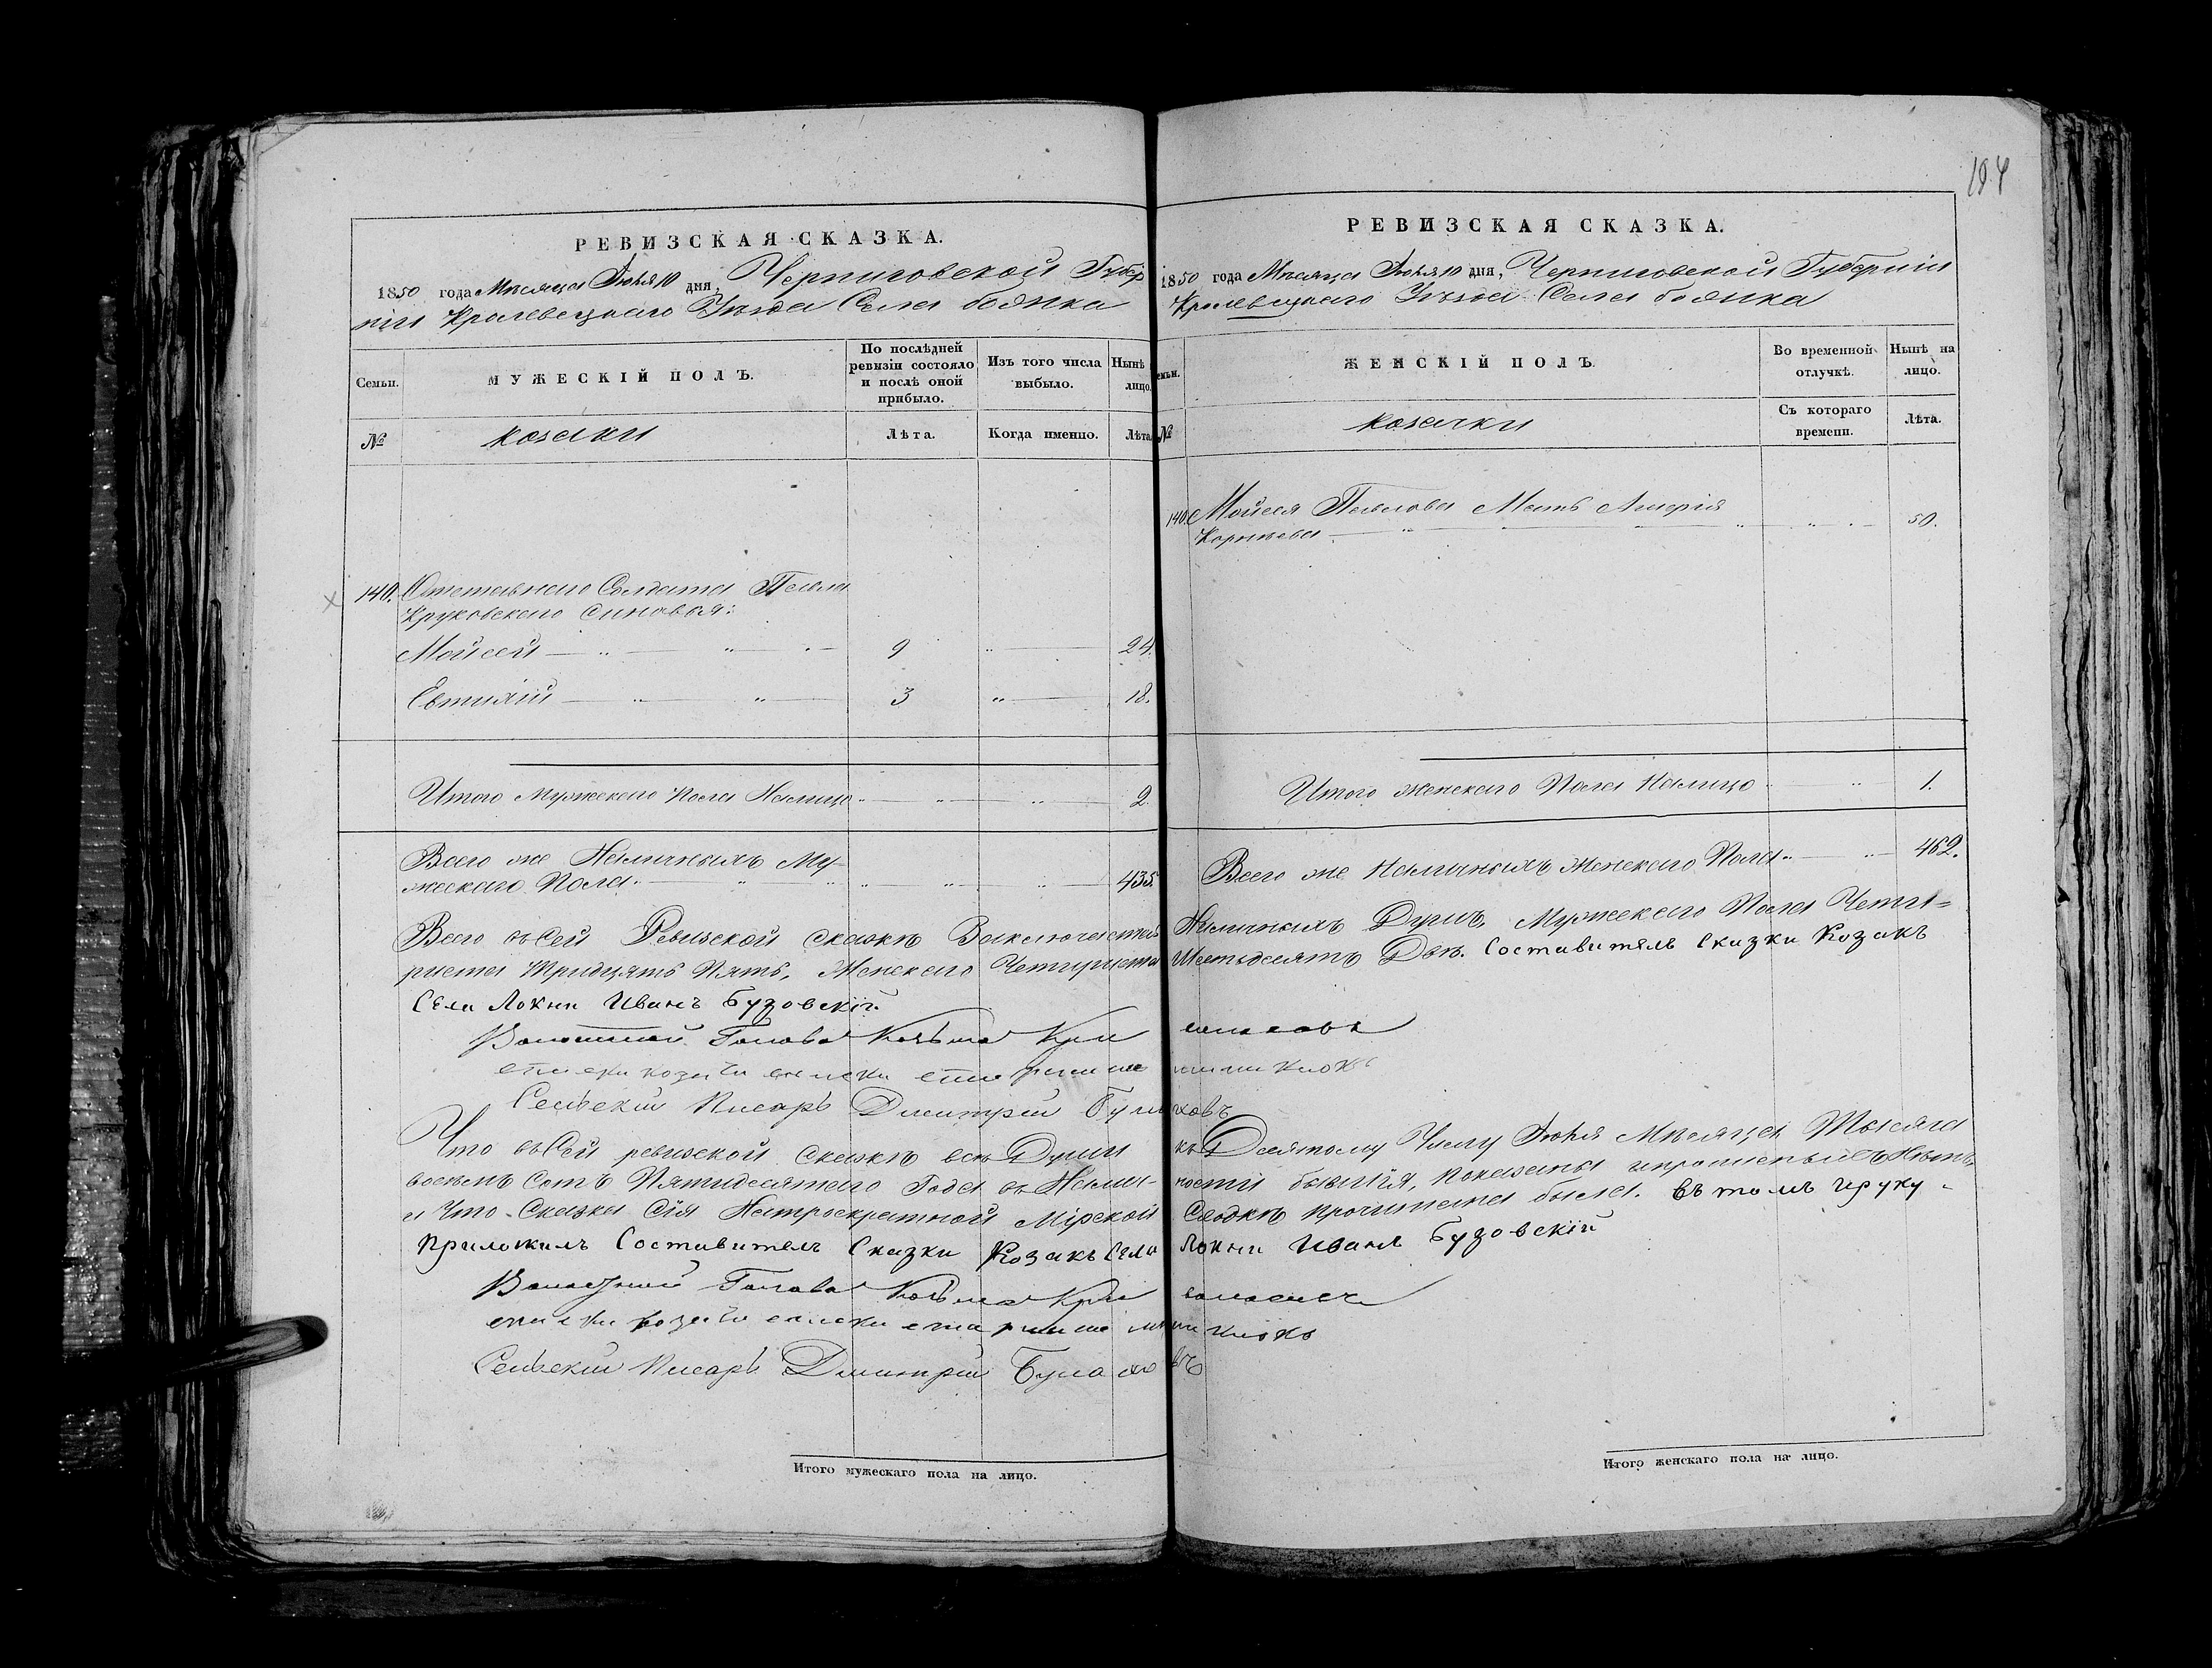 РЕВИЗСКАЯ СКАЗКА.
1850 года Мѣсяца Іюня 10 дня, Черниговской Губер
ніи Кролевецкаго Уѣзда Села
Семьи. МУЖЕСКІЙ ПОЛЪ. По послѣдней ревизіи состояло и послѣ оной прибыло. Изъ того числа выбыло. Нынѣ лицо.
№ козаки Лѣта. Когда именно. Лѣта
140. Солдата Павла
Круковскаго синовья:
Мойсей 9 24.
Евтихій 3 18.
Итого Мужескаго Пола Налицо 2.
Всего же Наличныхъ Му-
жескаго Пола 435.
194
РЕВИЗСКАЯ СКАЗКА.
1850 года Мѣсяца Іюня 10 дня, Черниговской Губерніи
Кролевецкаго Уѣзда Села
емьи. ЖЕНСКІЙ ПОЛЪ. Во временной отлучкѣ. Нынѣ на лицо.
№ козачки Съ котораго времени. Лѣта.
140. Мойсея Павлова Мать
Корнѣева 50.
Итого Женскаго Пола Налицо 1.
Всего же Наличныхъ Женскаго Пола 462.
Всего въ Сей Ревизской Сказкѣ Заключается Наличныхъ Душъ, Мужескаго Пола Четы=
риста Тридцять Пять, Женскаго Четыриста Шестьдесятъ Двѣ. Составитель Сказки Козакъ
Села Локни Иванъ Бузовскій
Голова Козьма
Сельскій Писарь Димитрій
Что въ Сей ревизской Сказкѣ всѣ Души къ Десятому Числу Іюня Мѣсяца Тысяча
восемъ Сотъ Пятидесятаго Года въ Налич-ности бывшія, показаны и прописныхъ Нѣтъ,
и Что Сказка Сія На троекратной Мірской Сходкѣ прочитана была. Въ томъ и руку
приложилъ Составитель Сказки Козакъ Села Локни Иванъ Бузовскій
Голова Козьма
Сельскій Писарь Димитрій
Итого мужескаго пола на лицо.
Итого женскаго пола на лицо.